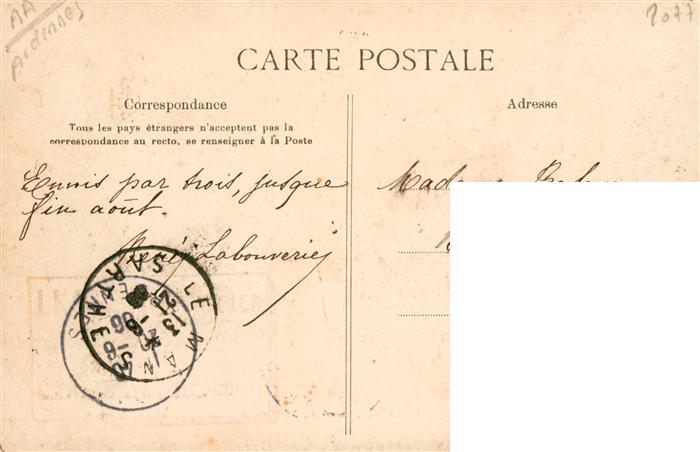 AA
Ardennes
2077
CARTE POSTALE
Correspondance
Tous les pays étrangers n'acceptent pas la
correspondance au recto, se renseigner à la Poste
Adresse
Ennuis par trois, jusque
fin août.
René Labouverie
Madame
LE MANS
SARTHE